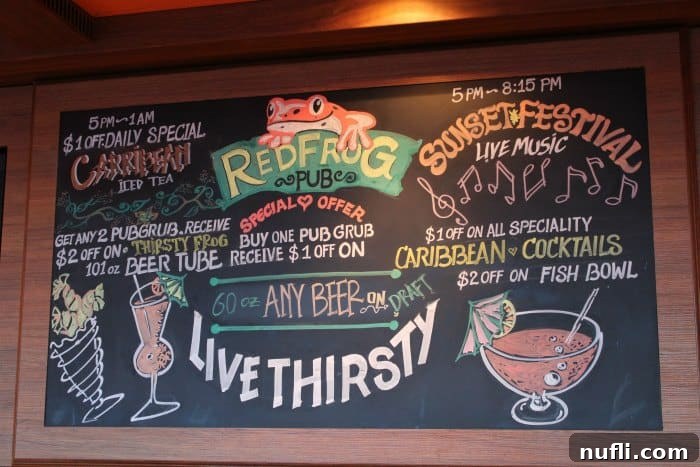 5PM~1AM
$1 OFF DAILY SPECIAL
CARRIBEAN
ICED TEA
GET ANY 2 PUBGRUB. RECEIVE
$2 OFF ON • THIRSTY FROG
101 oz BEER TUBE
RED FROG
PUB
SPECIAL OFFER
BUY ONE PUB GRUB
RECEIVE $1 OFF ON
60 oz ANY BEER ON DRAFT
LIVE THIRSTY
5PM~8:15 PM
SUNSET FESTIVAL
LIVE MUSIC
$1 OFF ON ALL SPECIALITY
CARIBBEAN COCKTAILS
$2 OFF ON FISH BOWL
nufli.com